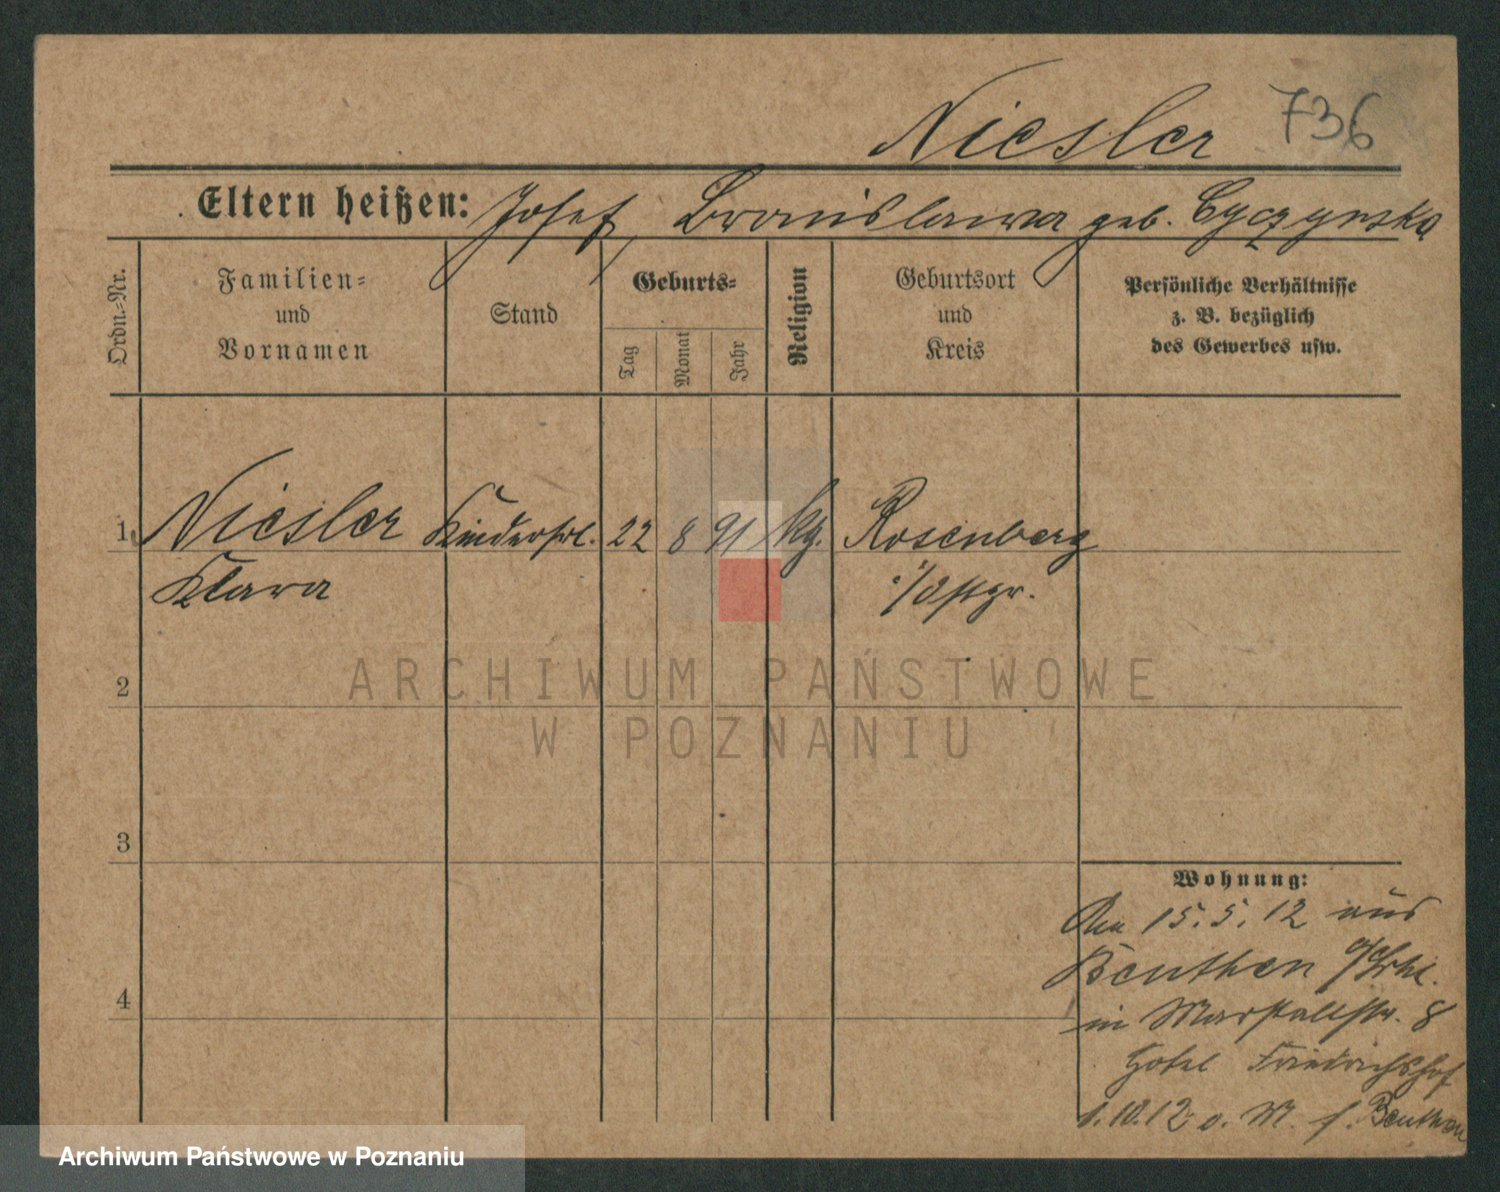 Niesler 736
Eltern heißen: Josef, Bronislawa geb. Cyczynska
Ordn.-Nr.
Familien-
und
Vornamen
Stand
Geburts-
Tag
Monat
Jahr
Religion
Geburtsort
und
Kreis
Persönliche Verhältnisse
z. B. bezüglich
des Gewerbes usw.
1 Niesler Kinderfrl. 22 8 91 Rosenberg
Klara
2
ARCHIWUM PAŃSTWOWE
W POZNANIU
3
4
Wohnung:
15.5.12 aus
Beuthen
in Marstallstr. 8
Hotel Friedrichshof
1.10.12 o. M. f. Beuthen
Archiwum Państwowe w Poznaniu